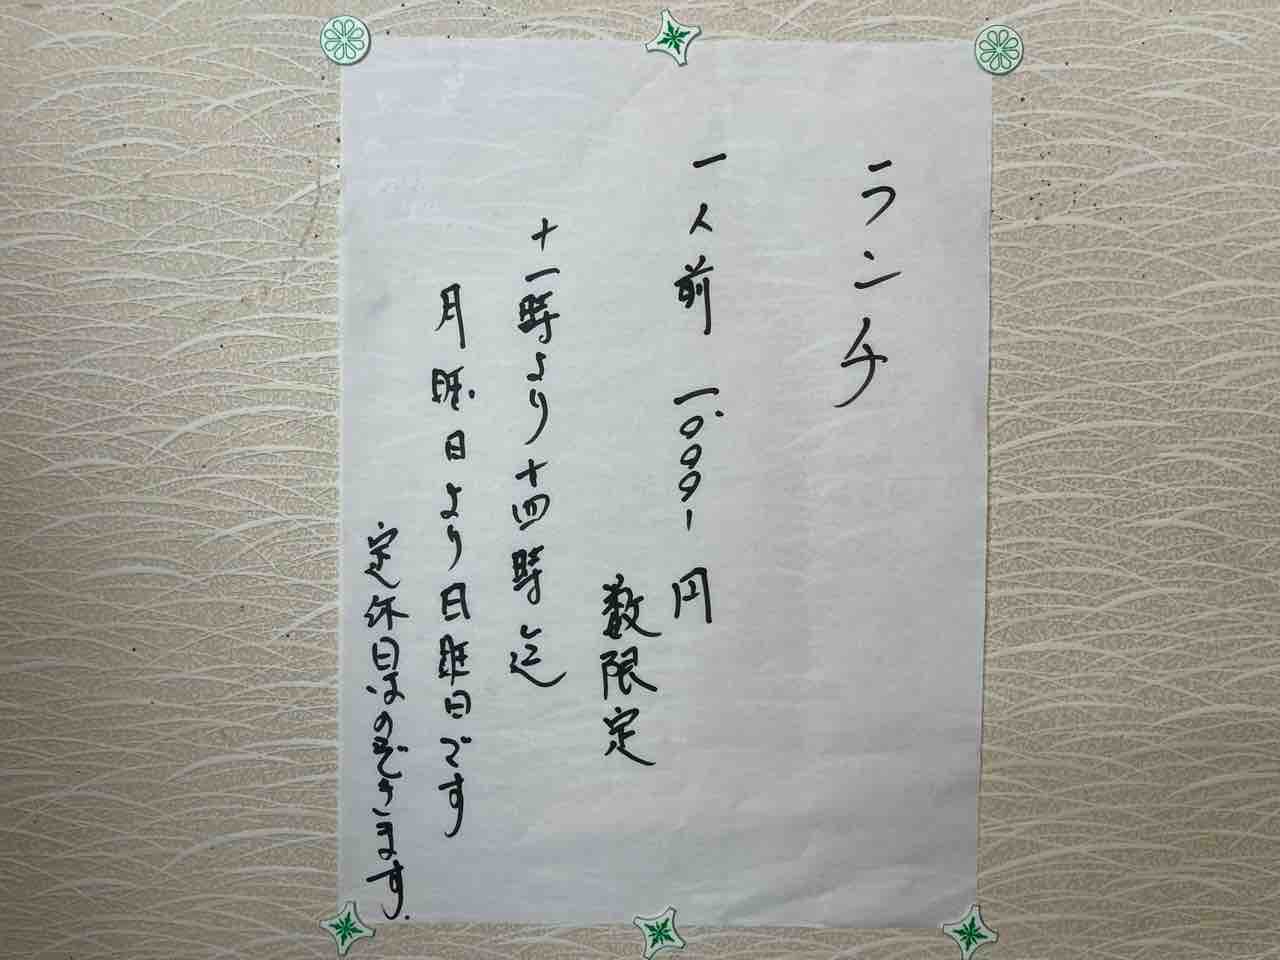 ランチ
一人前 一、〇〇〇ー円
数限定
十一時より十四時迄
月曜日より日曜日です
定休日はのぞきます.